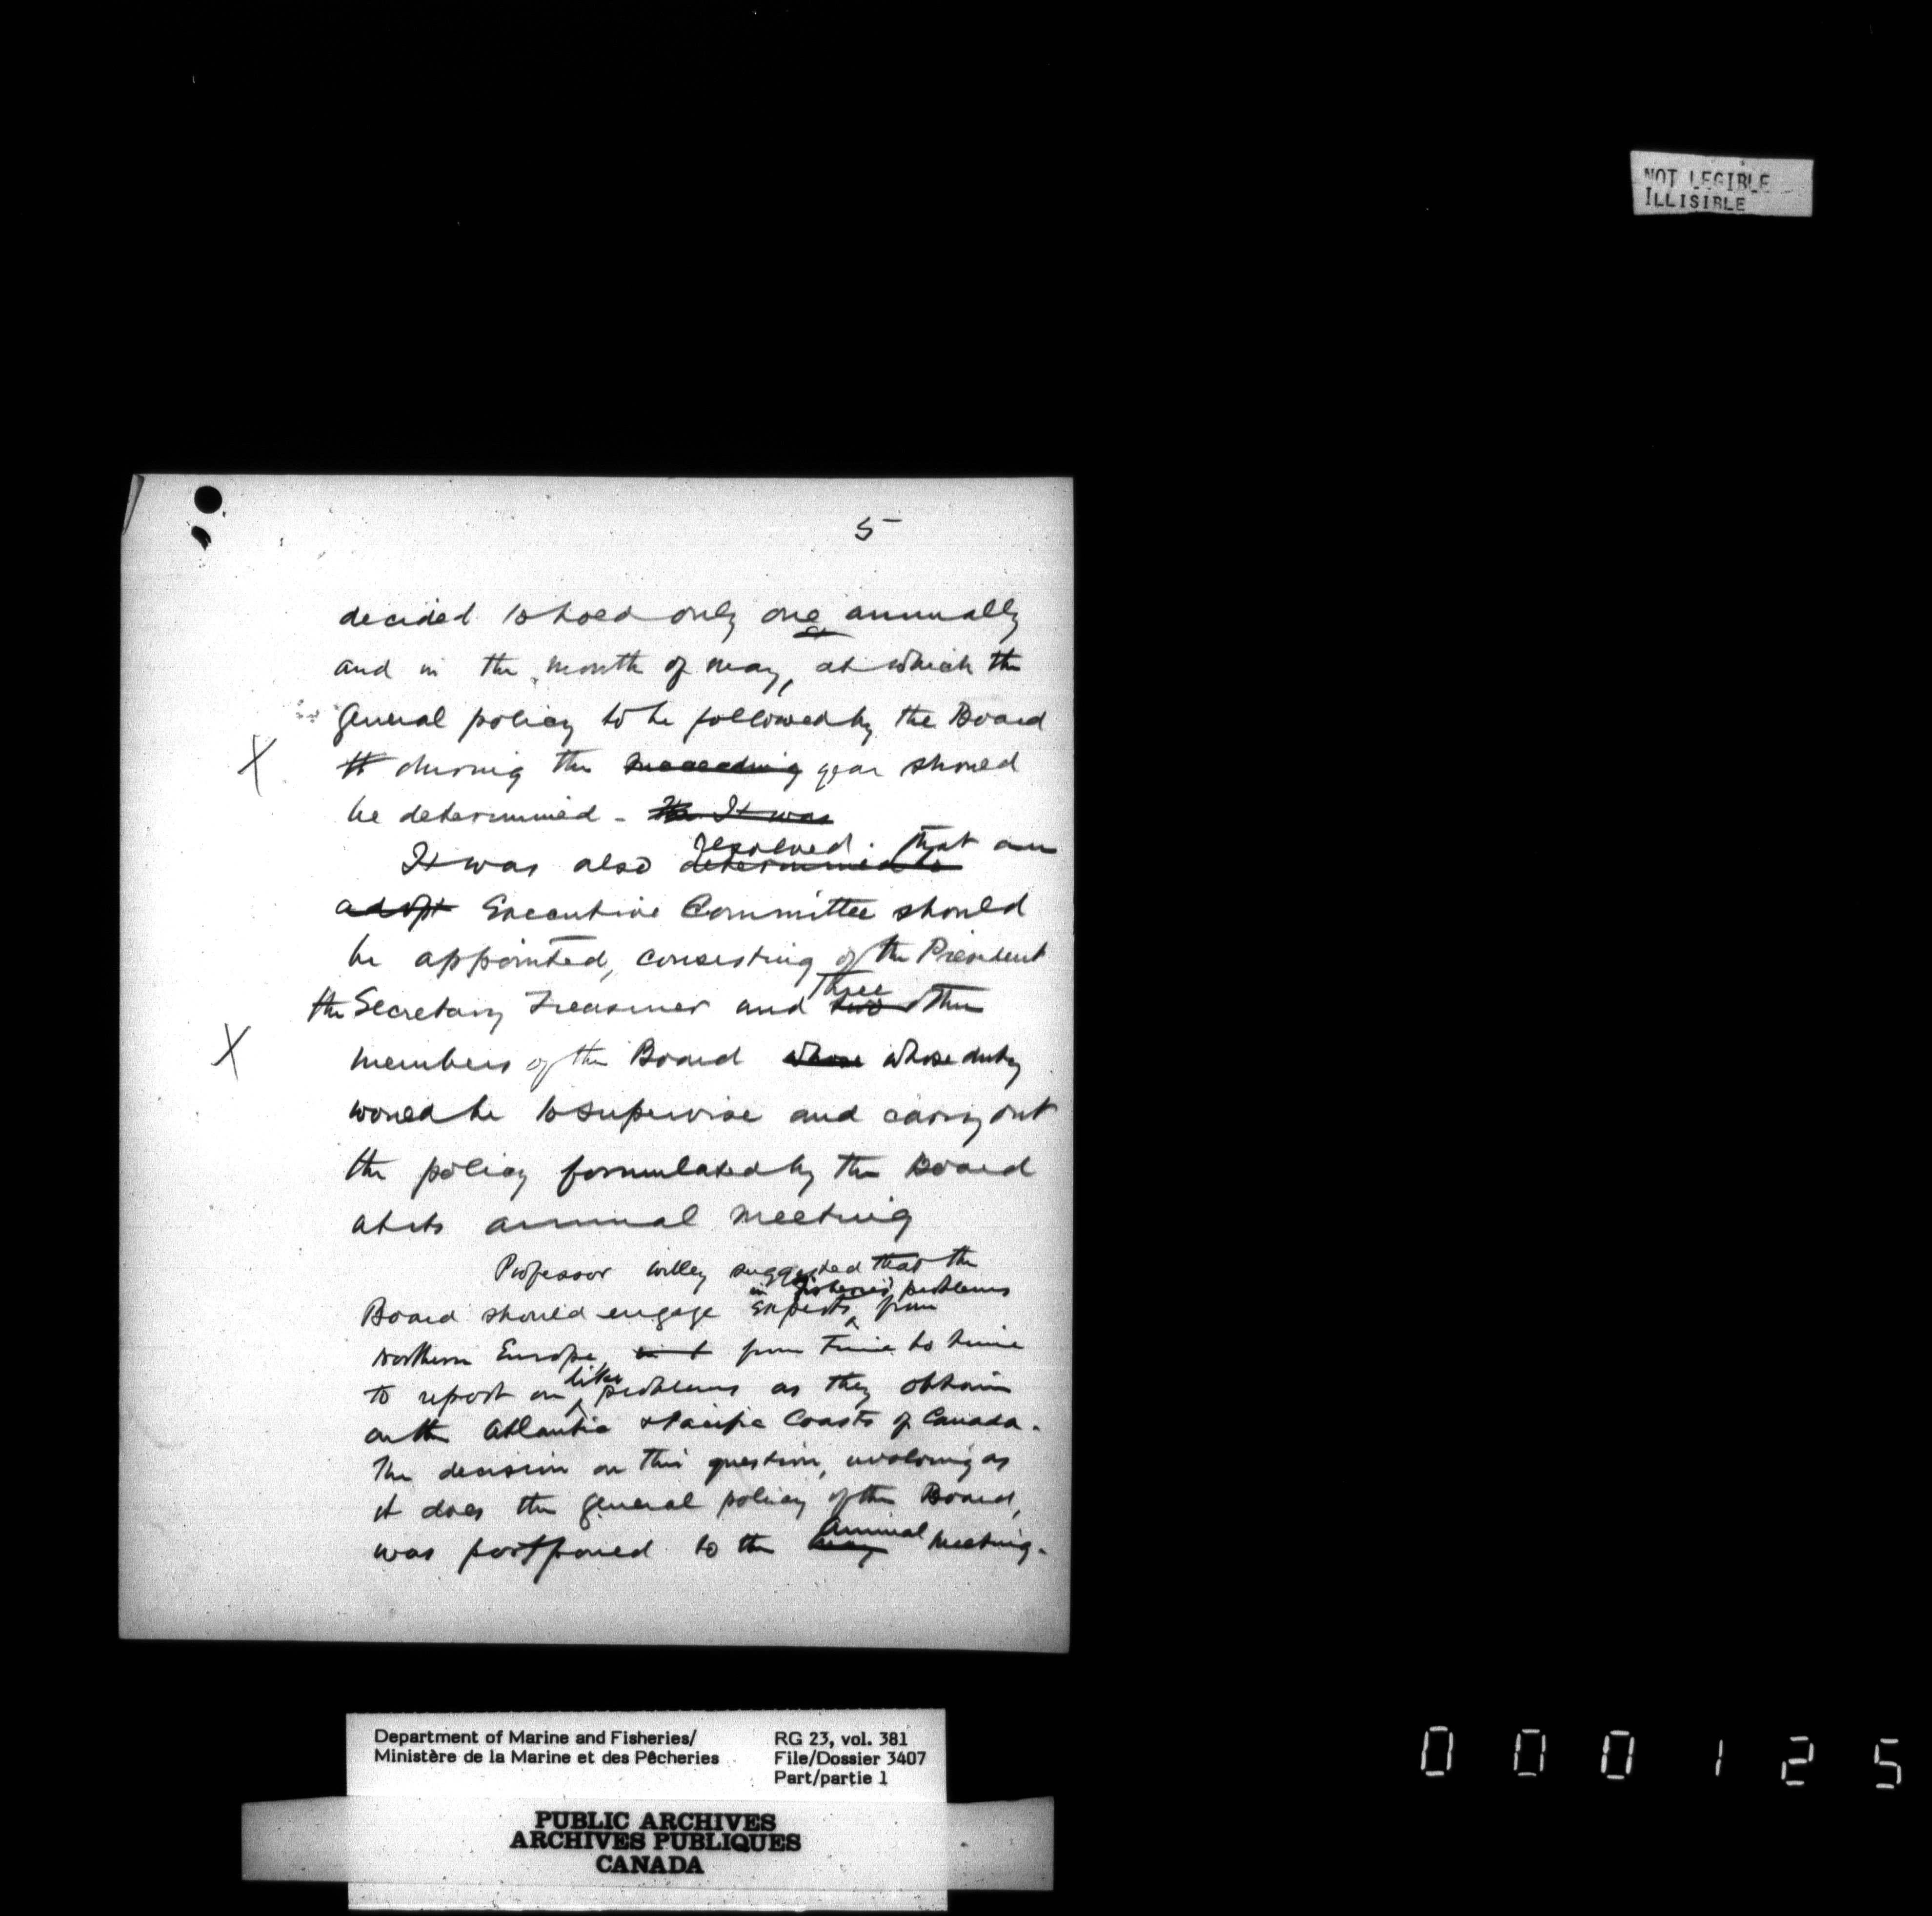 NOT LEGIBLE
ILLISIBLE
5
decided to hold only one annually
and in the month of May, at which the
general policy to be followed by the Board
X
th during the succeeding year should
be determined - The It was
resolved. that an
It was also determined to
adopt Executive Committee should
be appointed, consisting of the President
three
the Secretary Treasurer and two other
X
members of the Board whose whose duty
would be to supervise and carry out
the policy formulated by the Board
at its annual meeting
Professor Willey suggested that the
in fisheries problems
Board should engage experts from
northern Europe from time to time
like
to report on problems as they obtain
on the Atlantic & Pacific Coasts of Canada.
The decision on this question, involving as
it does the general policy of the Board,
annual
was postponed to the May meeting.
Department of Marine and Fisheries/
Ministère de la Marine et des Pêcheries
RG 23, vol. 381
File/Dossier 3407
Part/partie 1
PUBLIC ARCHIVES
ARCHIVES PUBLIQUES
CANADA
000125